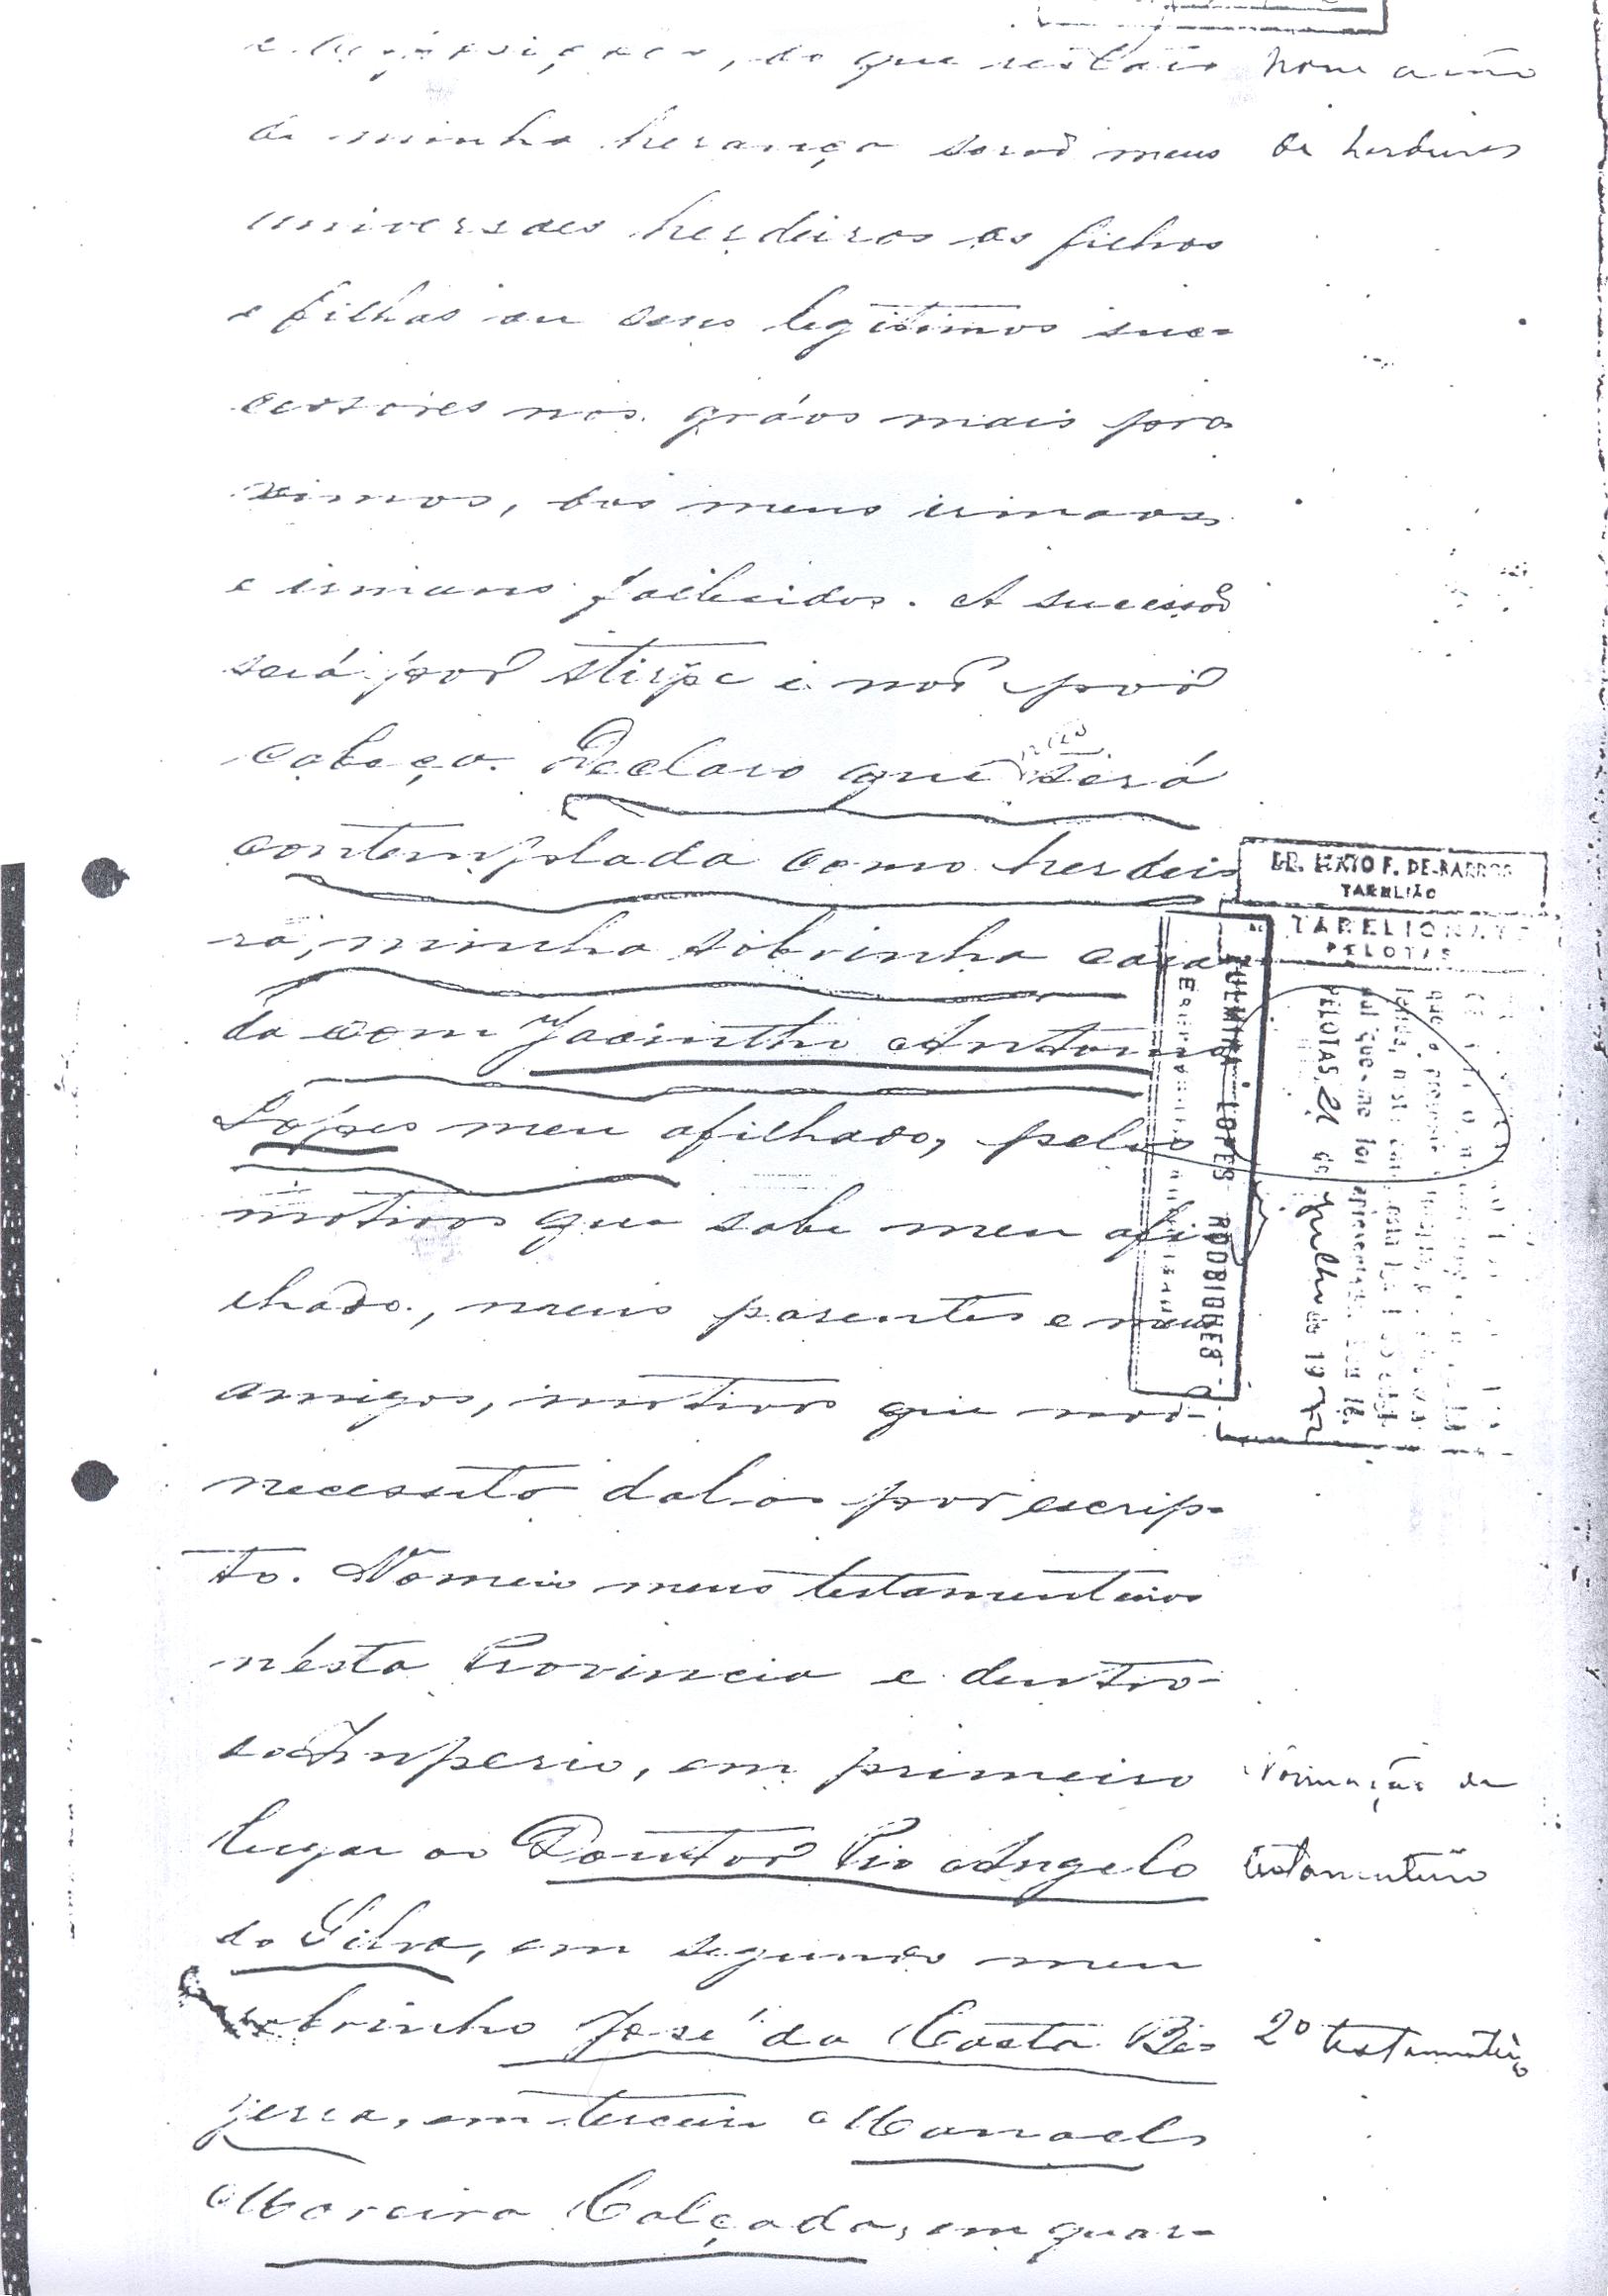 do que restar Nomeação
de minha herança serão meus de herdeiros
universaes herdeiros os filhos
e filhas ou seus legitimos suc-
cessores nos gráos mais pro-
ximos, dos meus irmaos
e irmans fallecidos. A sucessão
será por stirpe e não por
cabeça. Declaro que não será
contemplada como herdei-
ra, minha sobrinha casa-
da com Jacintho Antonio
Lopes meu afilhado, pelos
motivos que sabe meu afi-
lhado, meus parentes e meus
amigos, motivos que não
necessito dal-os por escrip-
to. Nomeio meus testamenteiros
n'esta Provincia e dentro
do Imperio, em primeiro Nomeação de
lugar ao Doutor Pio Angelo testamenteiro
da Silva, em segundo meu
sobrinho José da Costa Be- 2º testamenteiro
zerra, em terceiro Manoel
Moreira Calçada, em quar-
TABELIÃO
TABELIONATO
PELOTAS
LOPES RODRIGUES
PELOTAS, 21 de Julho de 1977